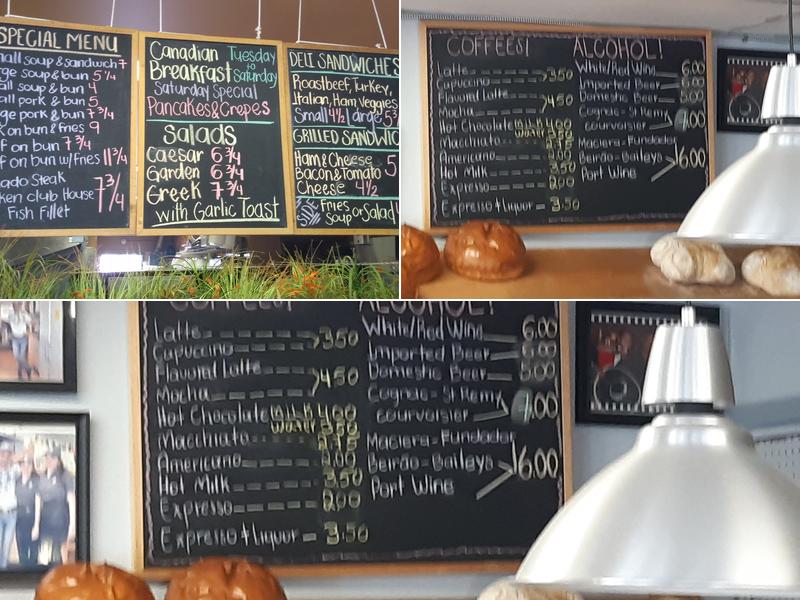 SPECIAL MENU
soup & sandwich 7
soup & bun 5 1/4
soup & bun 4
pork & bun 5
pork & bun 7 3/4
on bun & fries 9
on bun 7 3/4
on bun w/fries 11 3/4
Steak
club House 7 3/4
Fish Fillet
Canadian Tuesday
Breakfast to Saturday
Saturday Special
Pancakes & Crepes
Salads
Caesar 6 3/4
Garden 6 3/4
Greek 7 3/4
with Garlic Toast
DELI SANDWICHES
Roastbeef, Turkey,
Italian, Ham, Veggies
Small 4 1/2 large 5
GRILLED SANDWIC
Ham & Cheese 5
Bacon & Tomato
Cheese 4 1/2
Fries
Soup or Salad
COFFEES! ALCOHOL!
Latte 3.50 White/Red Wine 6.00
Capuccino Imported Beer 6.00
Flavoured Latte 4.50 Domestic Beer 5.00
Mocha Cognac-St Remy
Hot Chocolate Milk 4.00 courvoisier 7.00
Water 3.50
Macchiato 2.75 Macieira-Fundador
Americano 2.00 Beirão-Baileys 6.00
Hot Milk 3.50 Port Wine
Expresso 2.00
Expresso & Liquor 3.50
COFFEES! ALCOHOL!
Latte 3.50 White/Red Wine 6.00
Capuccino Imported Beer 6.00
Flavoured Latte 4.50 Domestic Beer 5.00
Mocha Cognac-St Remy
Hot Chocolate Milk 4.00 courvoisier 7.00
Water 3.50
Macchiato 2.75 Macieira-Fundador
Americano 2.00 Beirão-Baileys 6.00
Hot Milk 3.50 Port Wine
Expresso 2.00
Expresso & Liquor 3.50